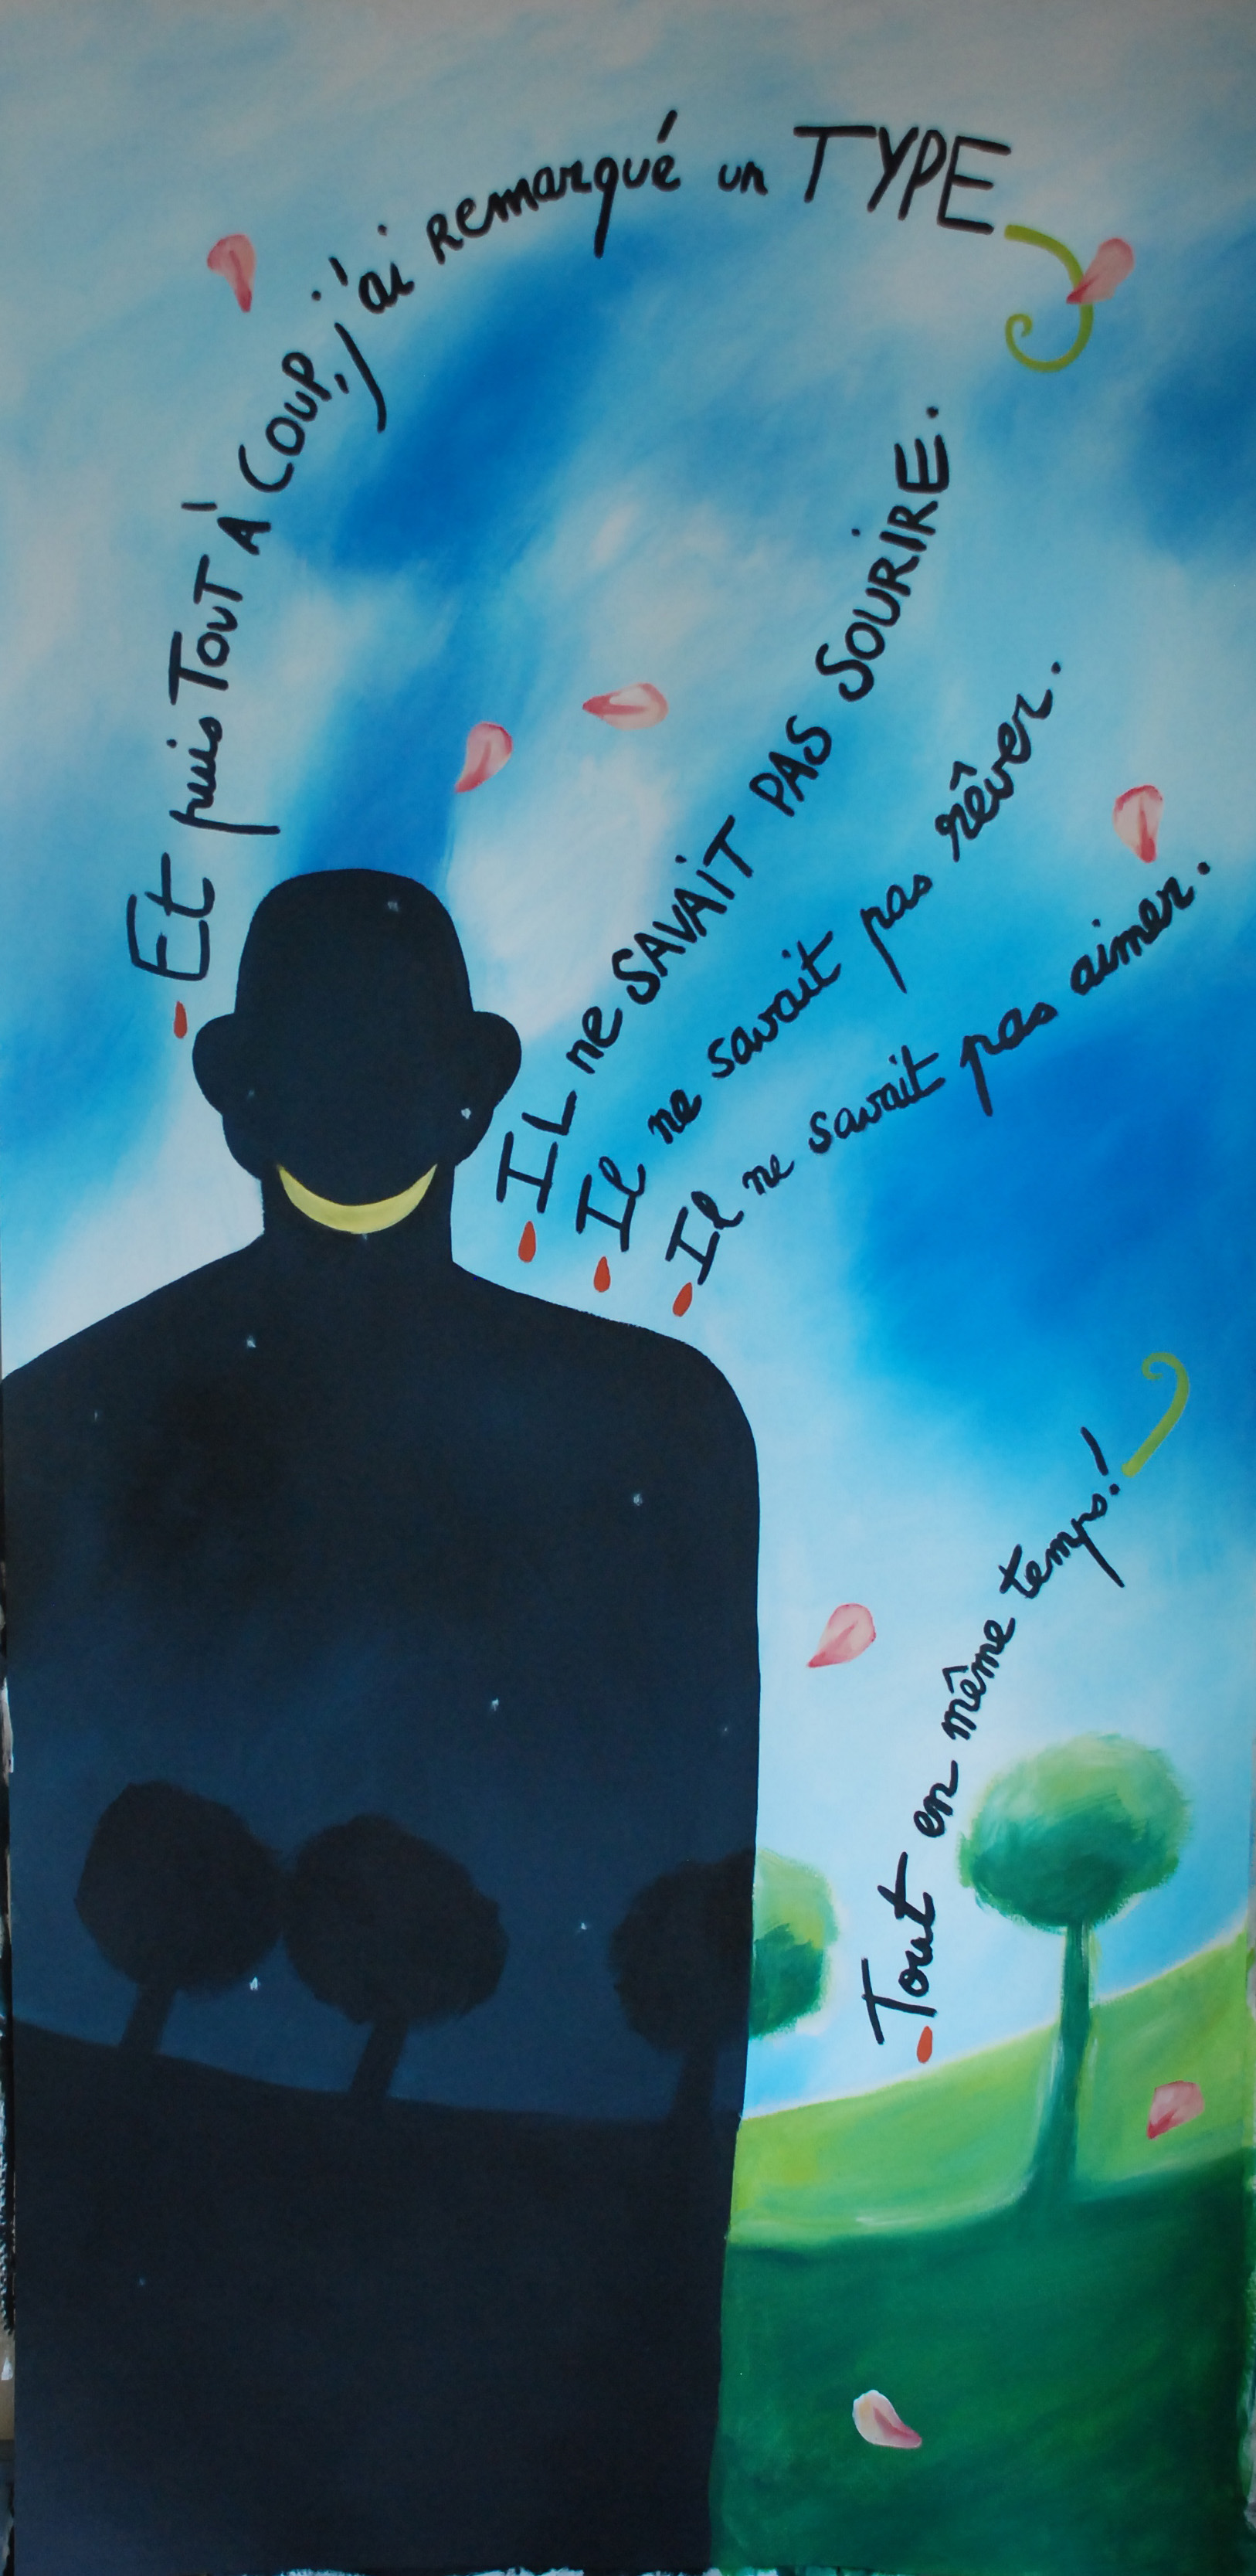 Et puis TOUT À COUP, j'ai remarqué un TYPE
IL ne SAVAIT PAS SOURIRE.
Il ne savait pas rêver.
Il ne savait pas aimer.
Tout en même temps!